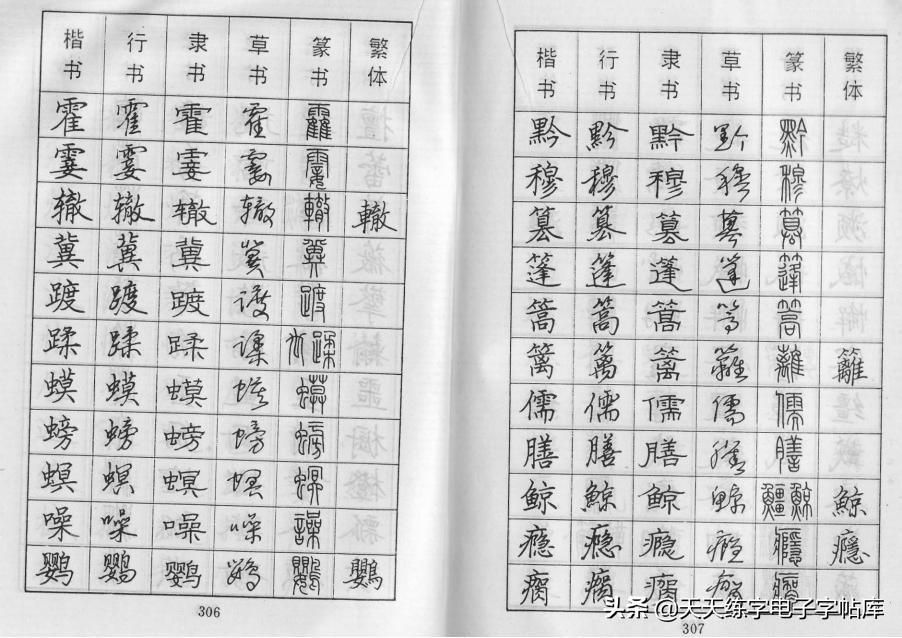 楷书 行书 隶书 草书 篆书 繁体
霍 霍 霍 霍 霍
霎 霎 霎 霎 霎
辙 辙 辙 辙 轍 轍
冀 冀 冀 冀 冀
踱 踱 踱 踱 踱
蹂 蹂 蹂 蹂 蹂
蟆 蟆 蟆 蟆 蟆
螃 螃 螃 螃 螃
螟 螟 螟 螟 螟
噪 噪 噪 噪 譟
鹦 鹦 鹦 鹦 鸚 鸚
306
楷书 行书 隶书 草书 篆书 繁体
黔 黔 黔 黔 黔
穆 穆 穆 穆 穆
篡 篡 篡 篡 篡
篷 篷 篷 篷 篷
篙 篙 篙 篙 篙
篱 篱 篱 籬 籬 籬
儒 儒 儒 儒 儒
膳 膳 膳 膳 膳
鲸 鲸 鲸 鲸 鯨 鯨
瘾 瘾 瘾 瘾 癮 癮
瘸 瘸 瘸 瘸 瘸
307
头条 @天天练字电子字帖库